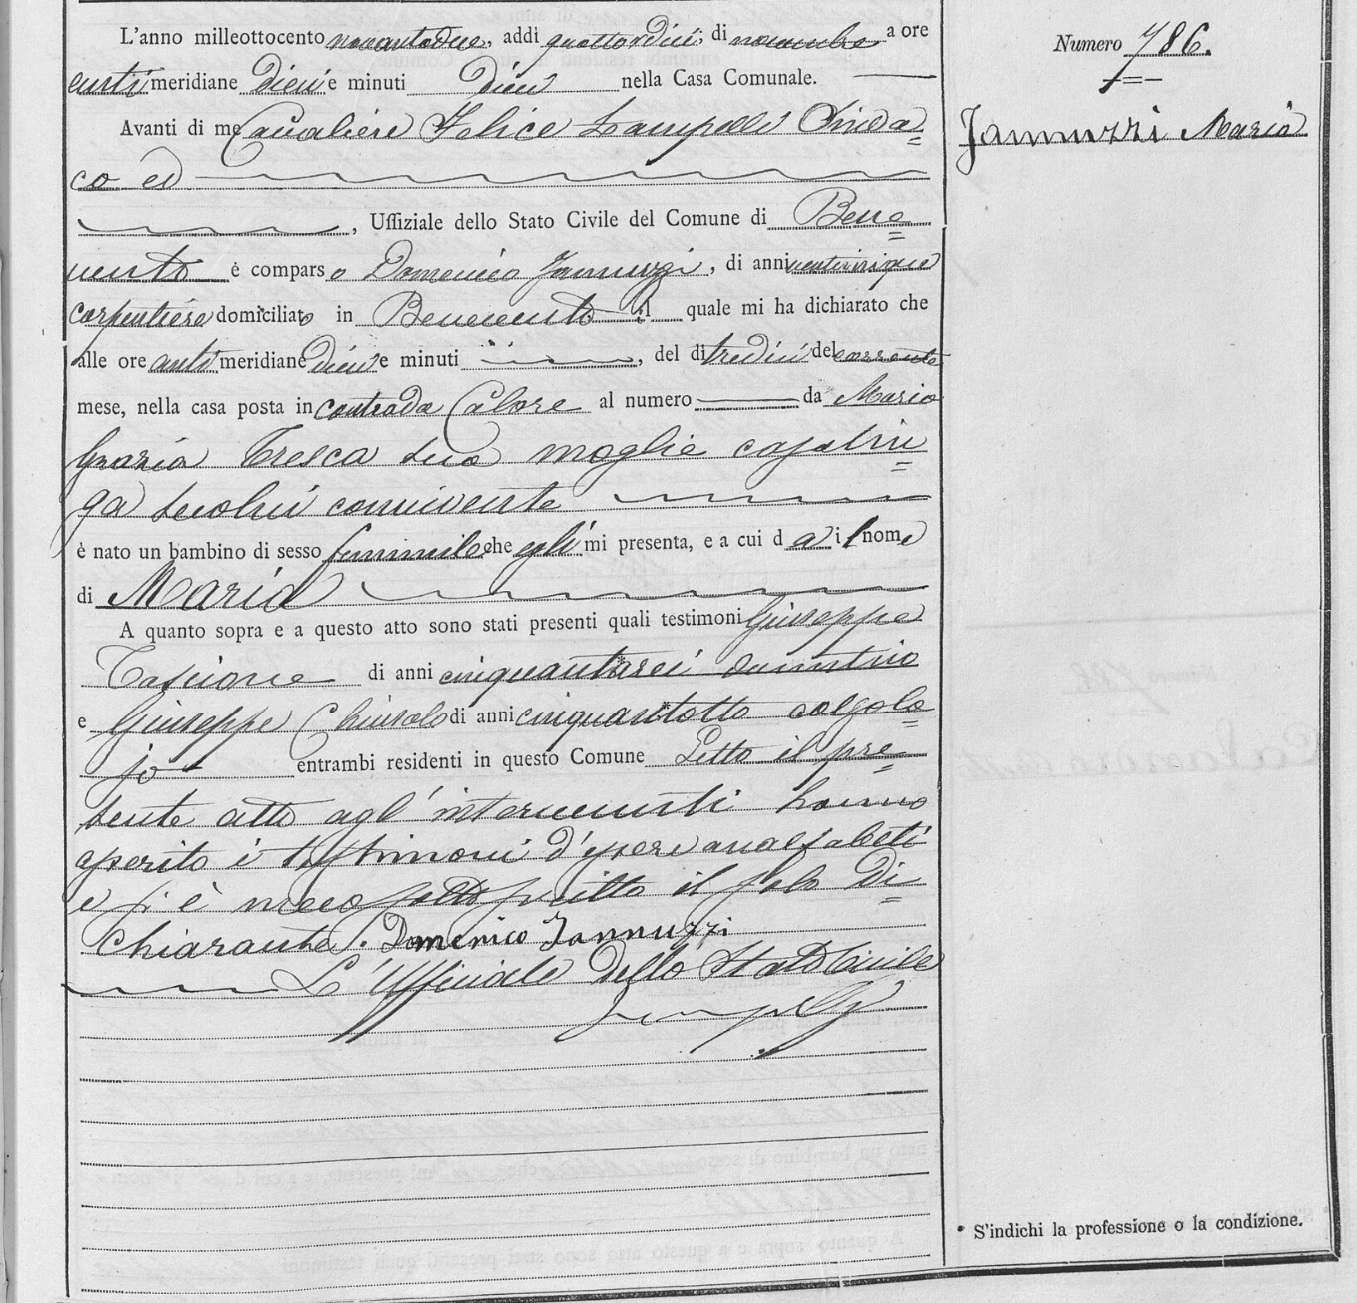 L'anno milleottocento novantadue, addi quattordici, di novembre a ore
anti meridiane Dieci e minuti Dieci nella Casa Comunale.
Numero 786.
Iannuzzi Maria
Avanti di me Cavaliere Felice Sinda=
co ed
, Uffiziale dello Stato Civile del Comune di Bene=
vento è comparso Domenico Iannuzzi, di anni venticinque
carpentiere domiciliato in Benevento il quale mi ha dichiarato che
alle ore anti meridiane dieci e minuti , del dì tredici del corrente
mese, nella casa posta in contrada Calore al numero da Maria
Grazia Tresca sua moglie casalin=
ga secolui convivente
è nato un bambino di sesso femminile che egli mi presenta, e a cui dà il nome
di Maria
A quanto sopra e a questo atto sono stati presenti quali testimoni Giuseppe
Tascione di anni cinquantasei
e Giuseppe Chiusolo di anni cinquantotto calzola=
jo entrambi residenti in questo Comune Letto il pre=
sente atto agl'intervenuti hanno
asserito i testimoni d'essere analfabeti
e si è meco sottoscritto il solo Di=
chiarante. Domenico Iannuzzi
L'Ufficiale dello Stato Civile
* S'indichi la professione o la condizione.